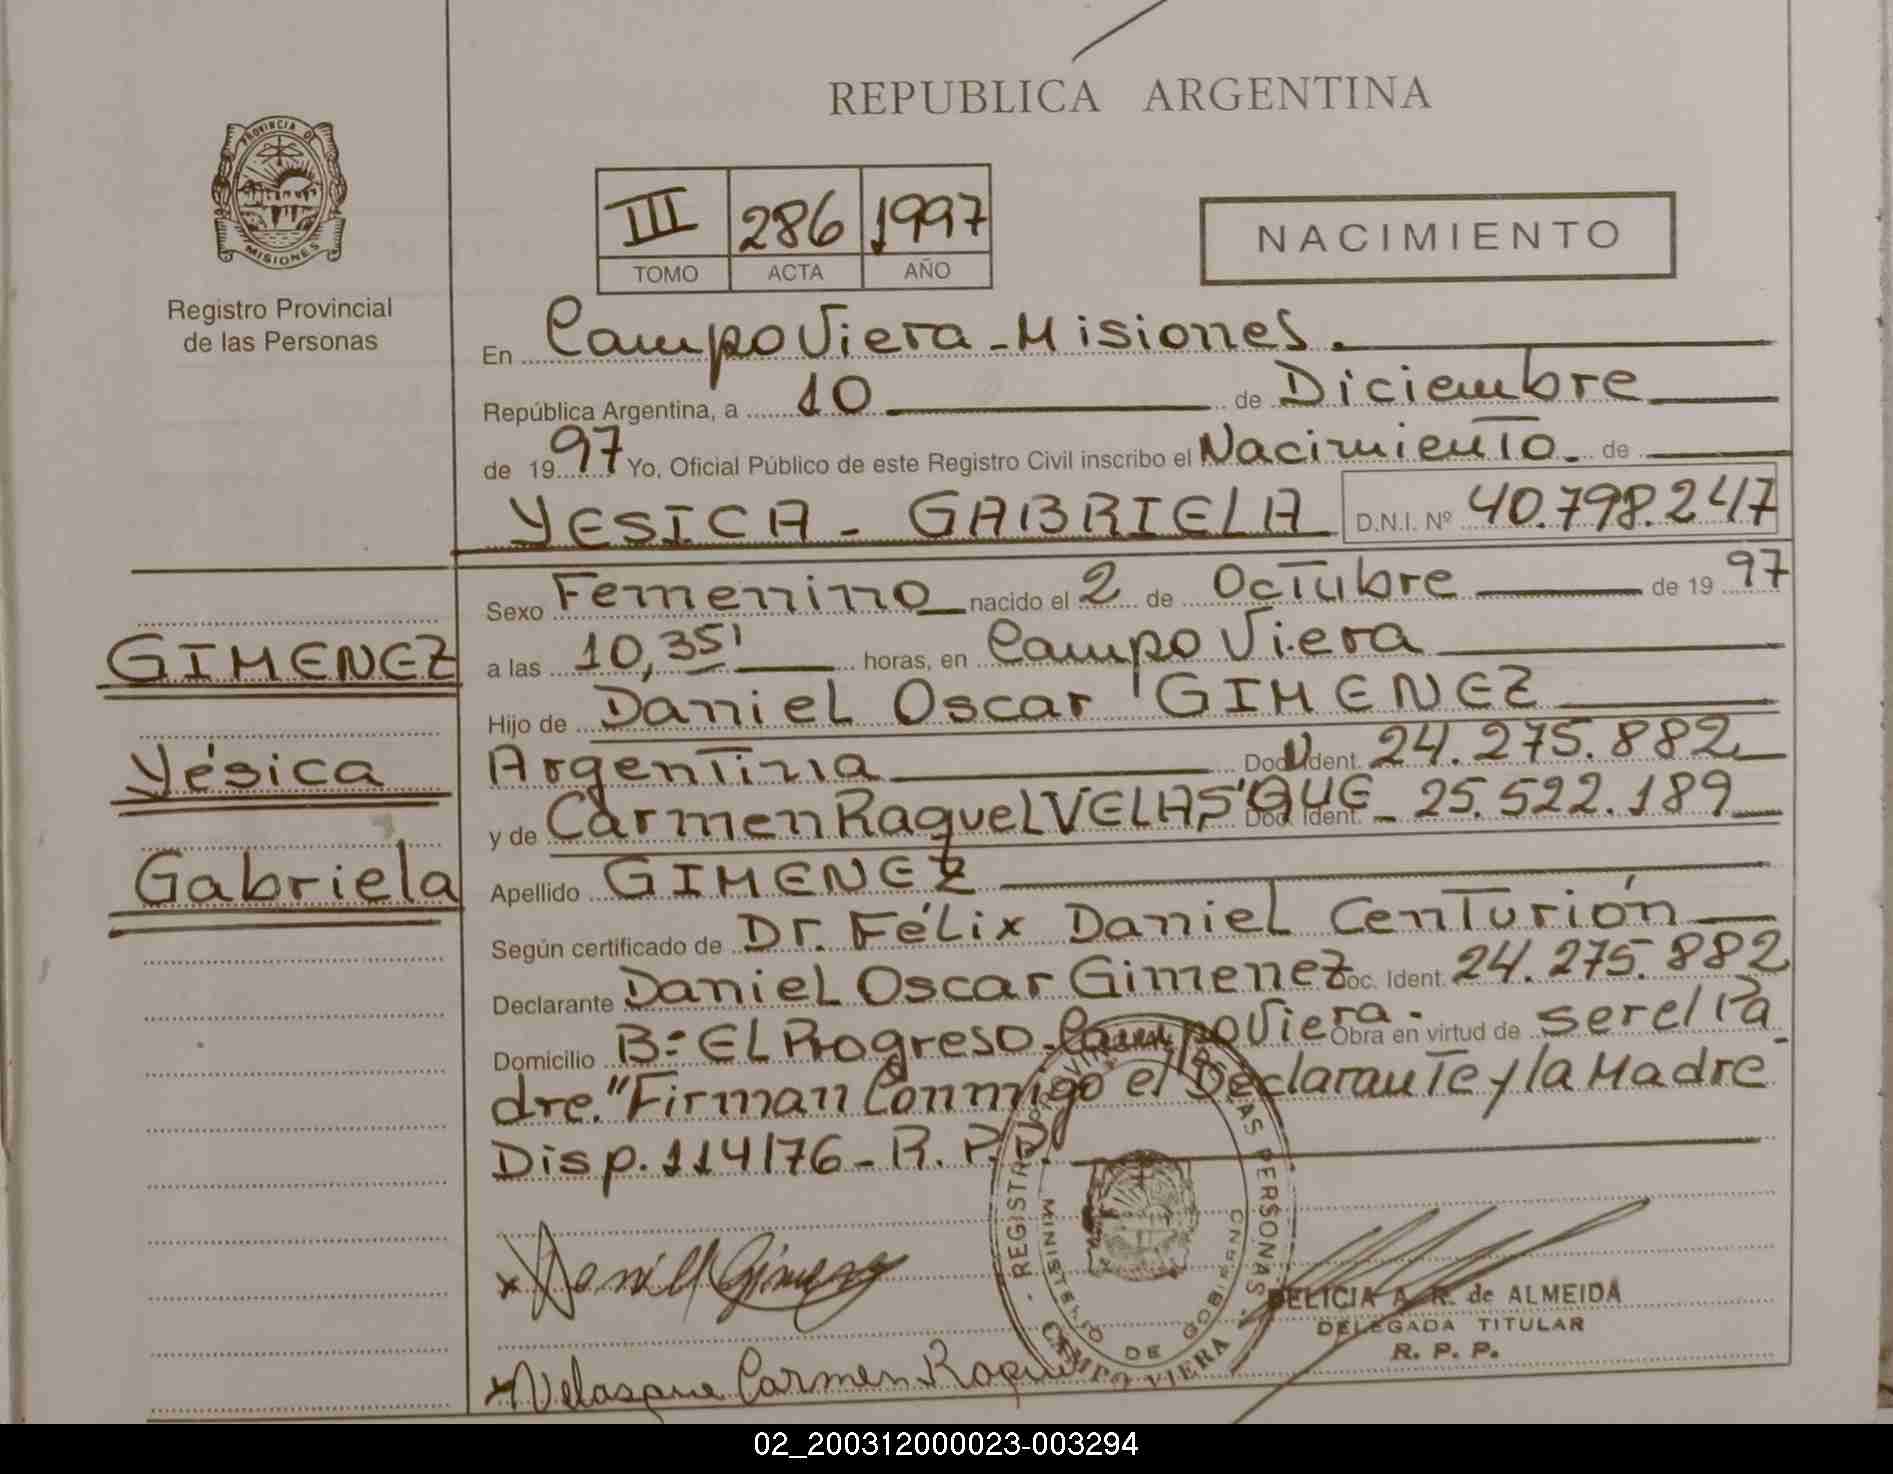 REPUBLICA ARGENTINA
PROVINCIA DE
MISIONES
Registro Provincial
de las Personas
III 286 1997
TOMO ACTA AÑO
NACIMIENTO
En Campo Viera - Misiones.
República Argentina, a 10 de Diciembre
de 1997 Yo, Oficial Público de este Registro Civil inscribo el Nacimiento. de
YESICA - GABRIELA D.N.I. Nº 40.798.247
GIMENEZ
Yésica
Gabriela
Sexo Femenino nacido el 2 de Octubre de 1997
a las 10,35' horas, en Campo Viera
Hijo de Daniel Oscar GIMENEZ
Argentina Doc. Ident. 24.275.882
y de Carmen Raquel VELASQUE Doc. Ident. 25.522.189
Apellido GIMENEZ
Según certificado de Dr. Félix Daniel Centurión
Declarante Daniel Oscar Gimenez Doc. Ident. 24.275.882
Domicilio Bº El Progreso - Campo Viera. Obra en virtud de ser el Pa
dre. "Firman Conmigo el Declarante y la Madre -
Disp. 114/76 - R. P. P.
REGISTRO PROVINCIAL DE LAS PERSONAS
MINISTERIO DE GOBIERNO
CAMPO VIERA
x Daniel Gimenez
DELICIA A. R. de ALMEIDA
DELEGADA TITULAR
R. P. P.
x Velasque Carmen Raquel
02_200312000023-003294